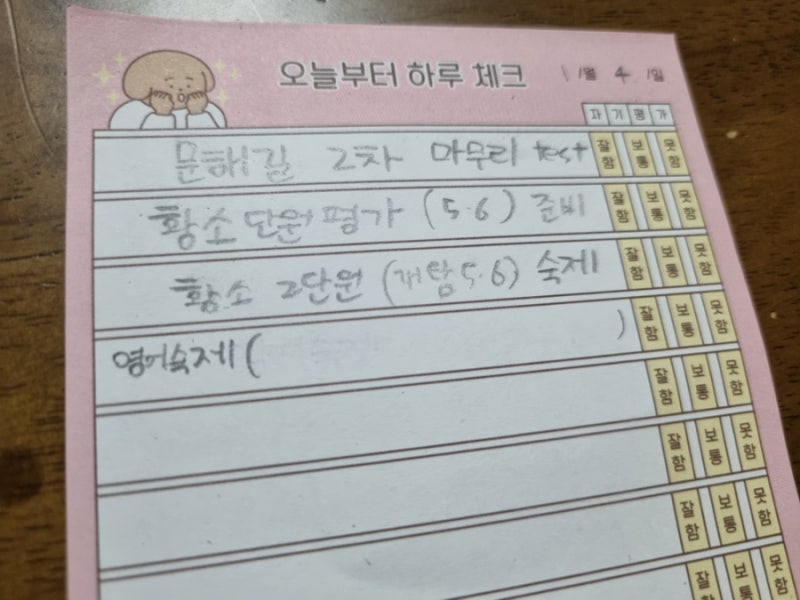 오늘부터 하루 체크 1월 4일
자기평가
문해길 2차 마무리 test 잘함 보통 못함
황소단원평가 (5·6) 준비 잘함 보통 못함
황소 2단원 (개탐5·6) 숙제 잘함 보통 못함
영어숙제( ) 잘함 보통 못함
잘함 보통 못함
잘함 보통 못함
잘함 보통 못함
잘함 보통 못함